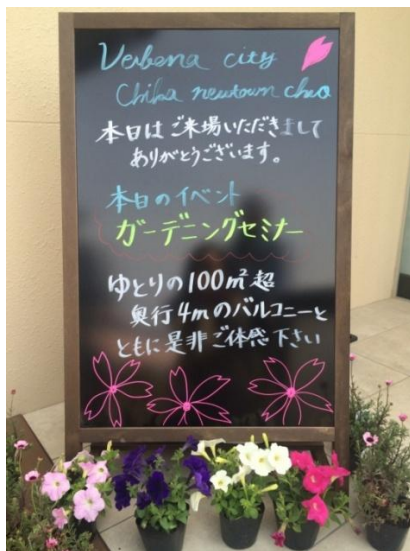 Verbena city
Chiba newtown chuo
本日はご来場いただきまして
ありがとうございます。
本日のイベント
ガーデニングセミナー
ゆとりの100㎡超
奥行4mのバルコニーと
ともに是非ご体感下さい